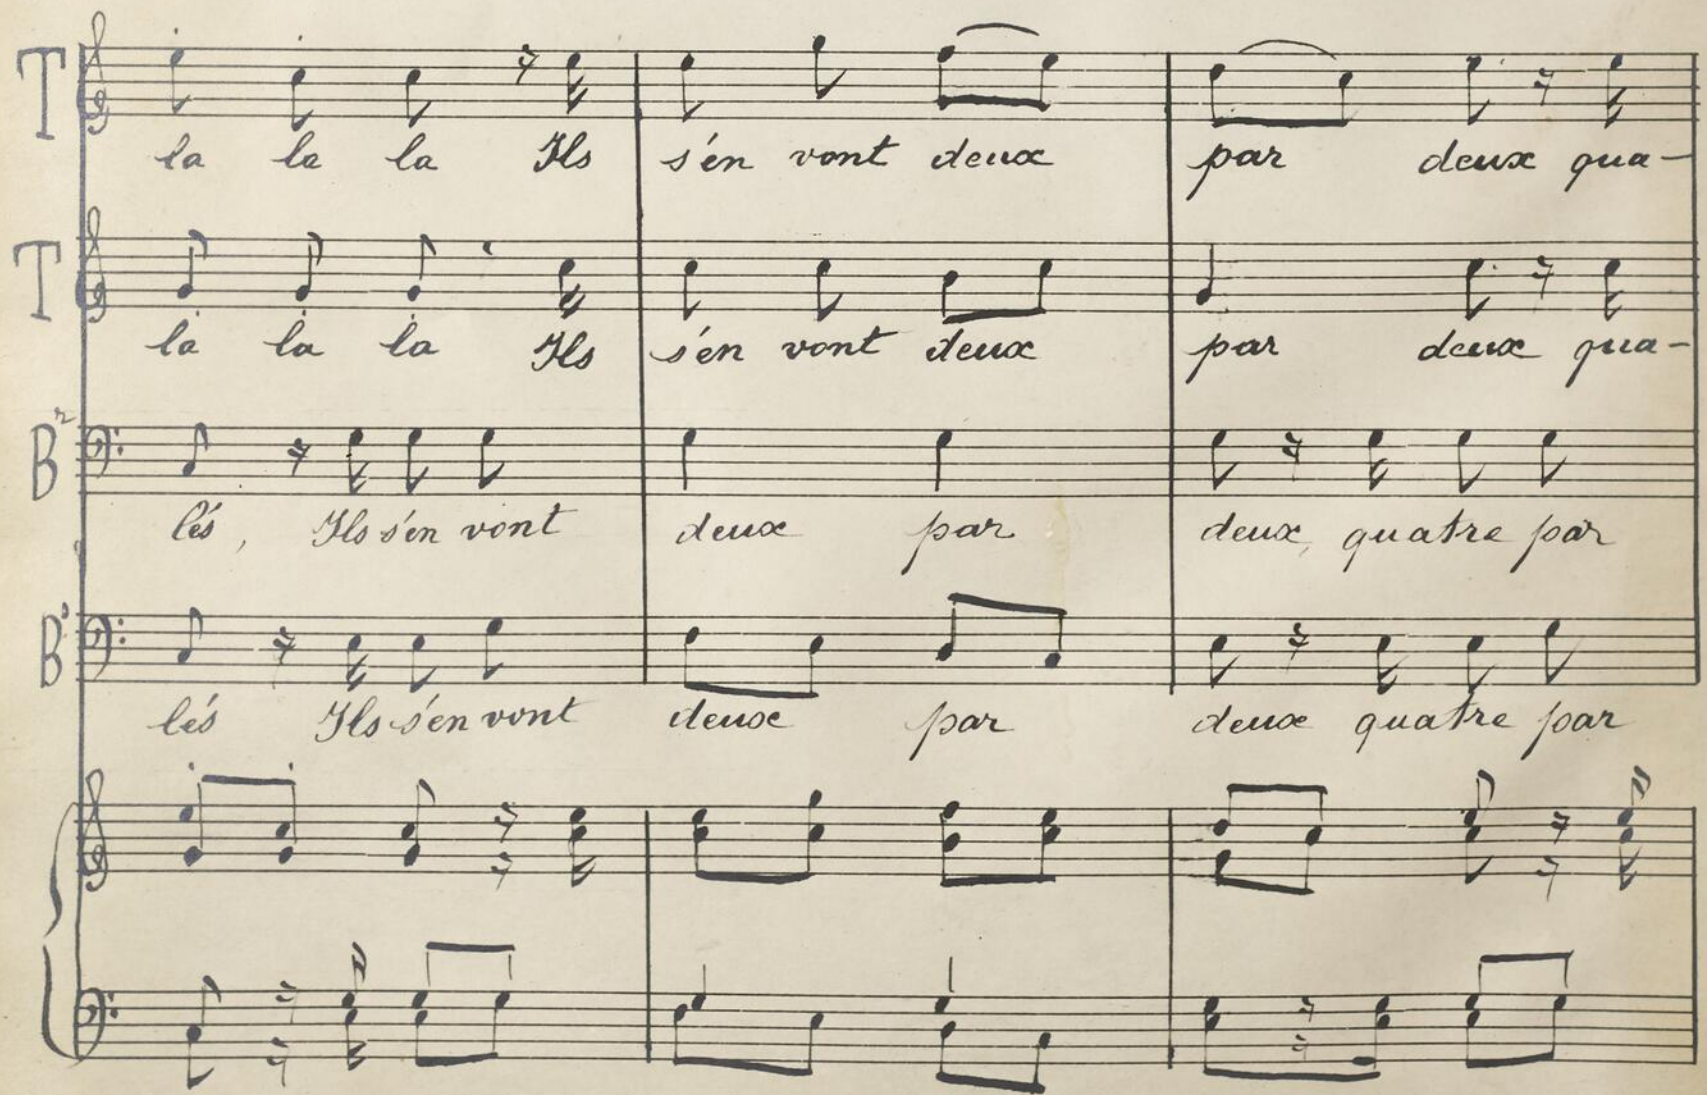 T
la la la Ils s'en vont deux par deux qua-
T
la la la Ils s'en vont deux par deux qua-
Br
lés, Ils s'en vont deux par deux, quatre par
B
lés Ils s'en vont deux par deux quatre par